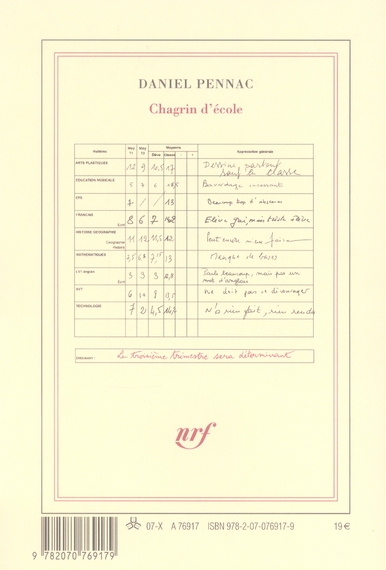 DANIEL PENNAC
Chagrin d'école
Matières
Moy T1
Moy T2
Moyenne
Elève
classe
Appréciation générale
ARTS PLASTIQUES 12 9 10,5 17 Dessine partout sauf en classe
EDUCATION MUSICALE 5 7 6 Bavardage incessant
EPS / / 13 Beaucoup trop d'absences
FRANCAIS Ecrit 8 6 7 Elève gai, mais triste élève
HISTOIRE GEOGRAPHIE 11 12 11,5 12 Peut encore mieux faire
MATHEMATIQUES 13 Manque de bases
LV1 Anglais Ecrit 3 3 3 Parle beaucoup, mais pas un mot d'anglais
ne doit pas se décourager
TECHNOLOGIE 7 2 4,5 N'a rien fait, rien rendu
Le troisième trimestre sera déterminant
nrf
07-X A 76917 ISBN 978-2-07-076917-9 19 €
9 782070 769179